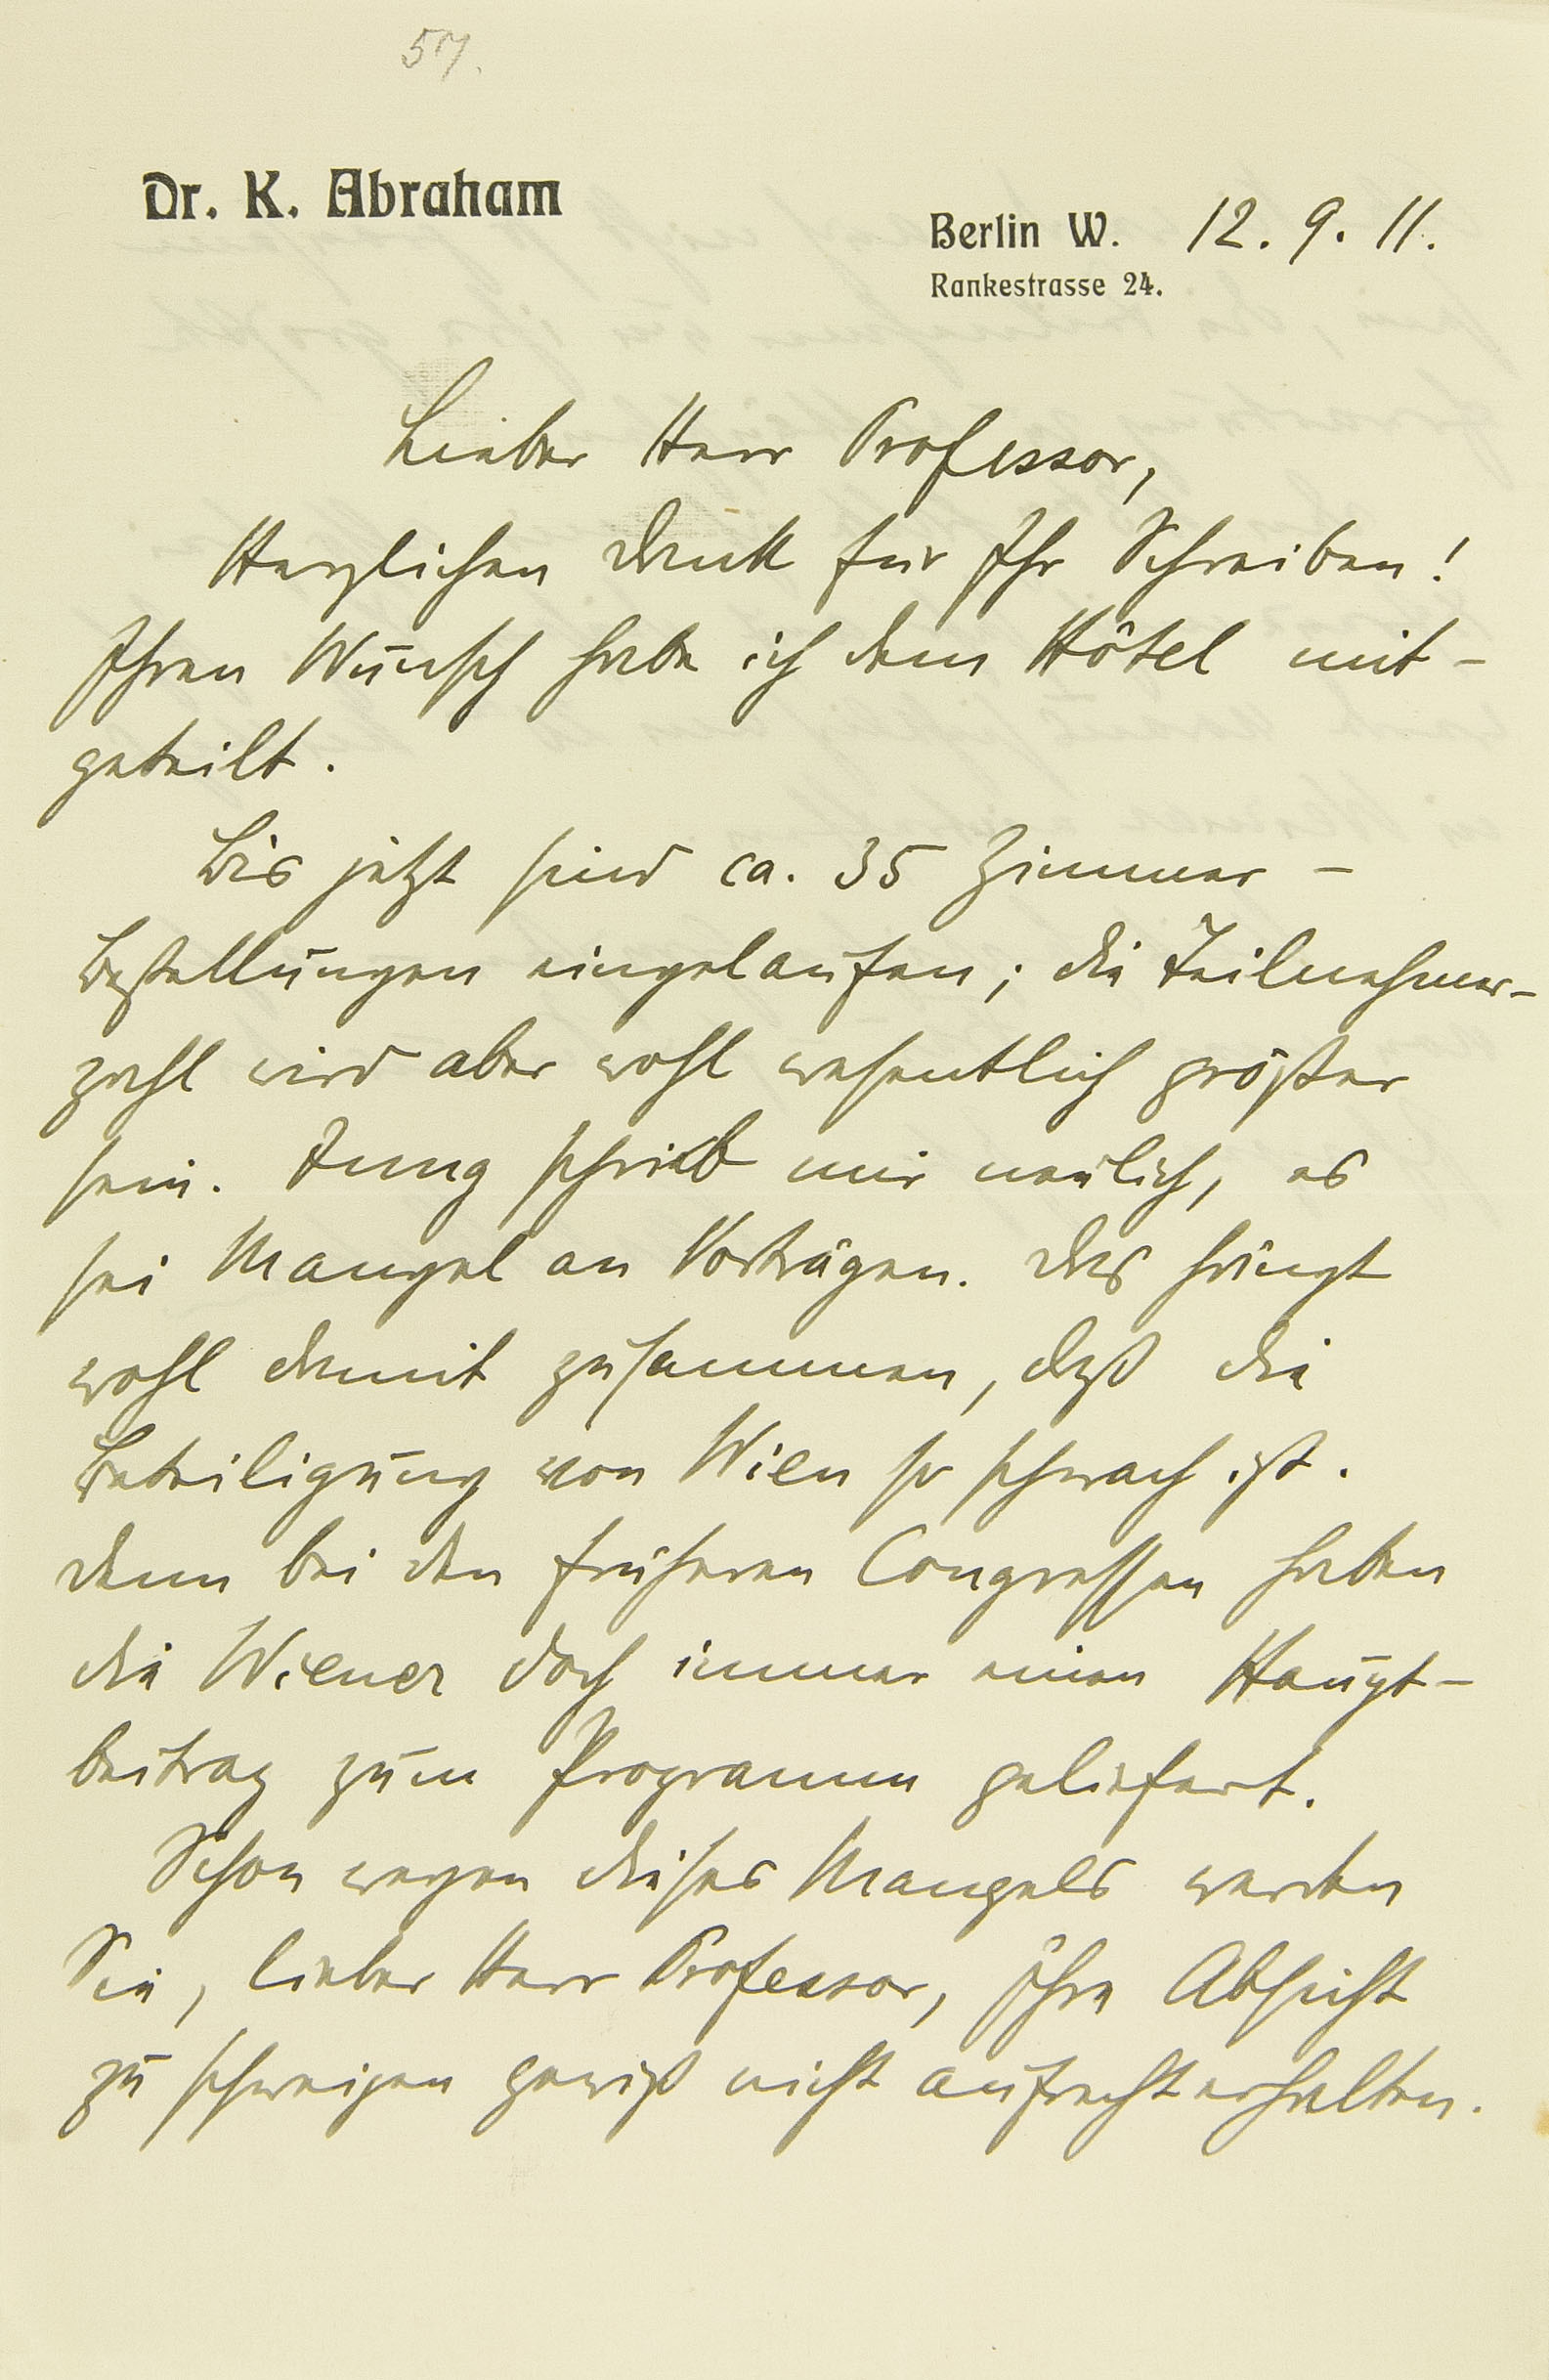 57.
Dr. K. Abraham
Berlin W. 12. 9. 11.
Rankestrasse 24.
Lieber Herr Professor,
Herzlichen Dank für Ihr Schreiben!
Ihren Wunsch habe ich dem Hôtel mit-
geteilt.
Bis jetzt sind ca. 35 Zimmer-
bestellungen eingelaufen; die Teilnehmer-
zahl wird aber wohl wesentlich größer
sein. Jung schrieb mir neulich, es
sei Mangel an Vorträgen. Das hängt
wohl damit zusammen, daß die
Beteiligung von Wien so schwach ist.
Denn bei den früheren Congressen haben
die Wiener doch immer einen Haupt-
beitrag zum Programm geliefert.
Schon wegen dieses Mangels werden
Sie, lieber Herr Professor, Ihre Absicht
zu schweigen gewiß nicht aufrechterhalten.